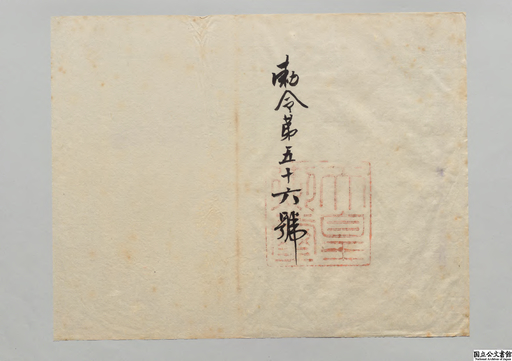 勅令第五十六號
国立公文書館
National Archives of Japan